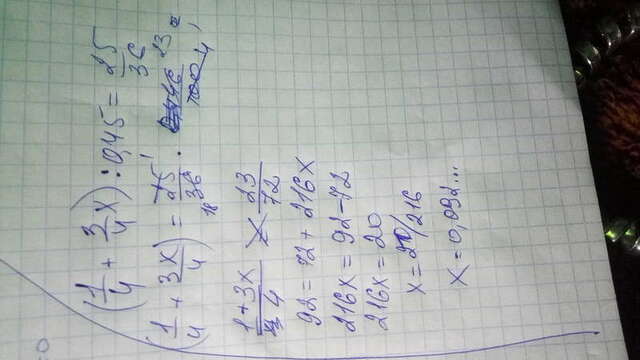 (1/4 + 3/4 x) : 0,45 = 25/36
(1/4 + 3x/4) = 25/36 ·
1+3x/4 23/72
92 = 72 + 216x
216x = 92 - 72
216x = 20
x = 20/216
x = 0,092...